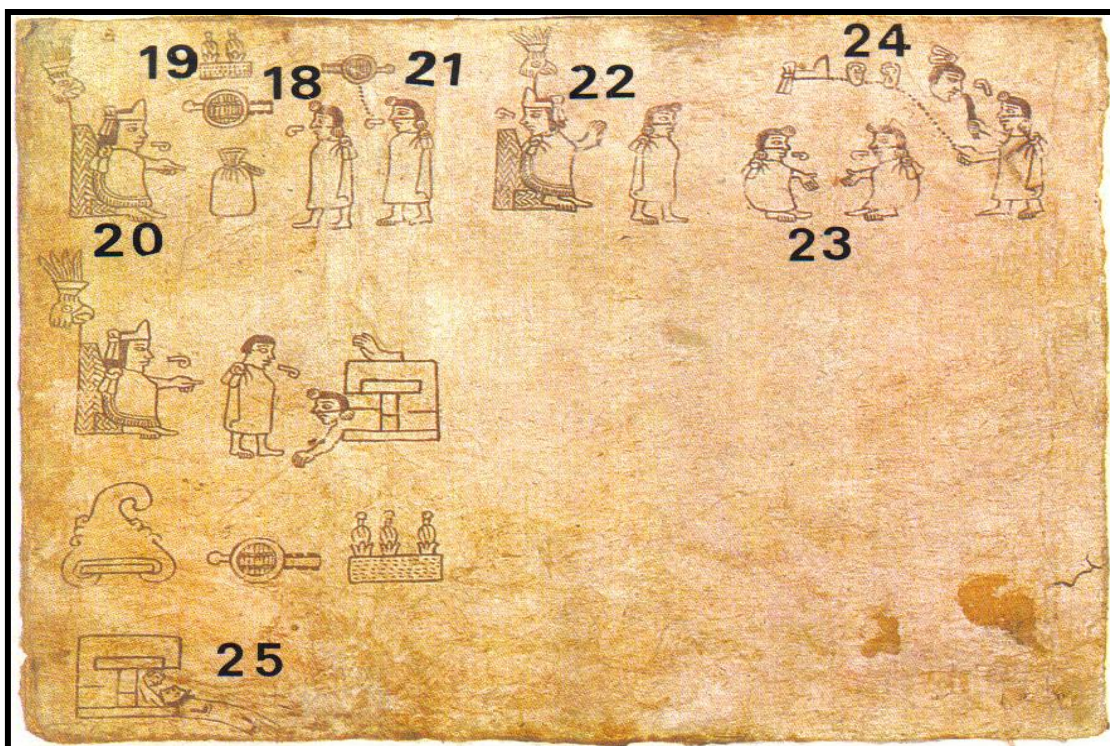 19 18 21 22 24
20 23
25